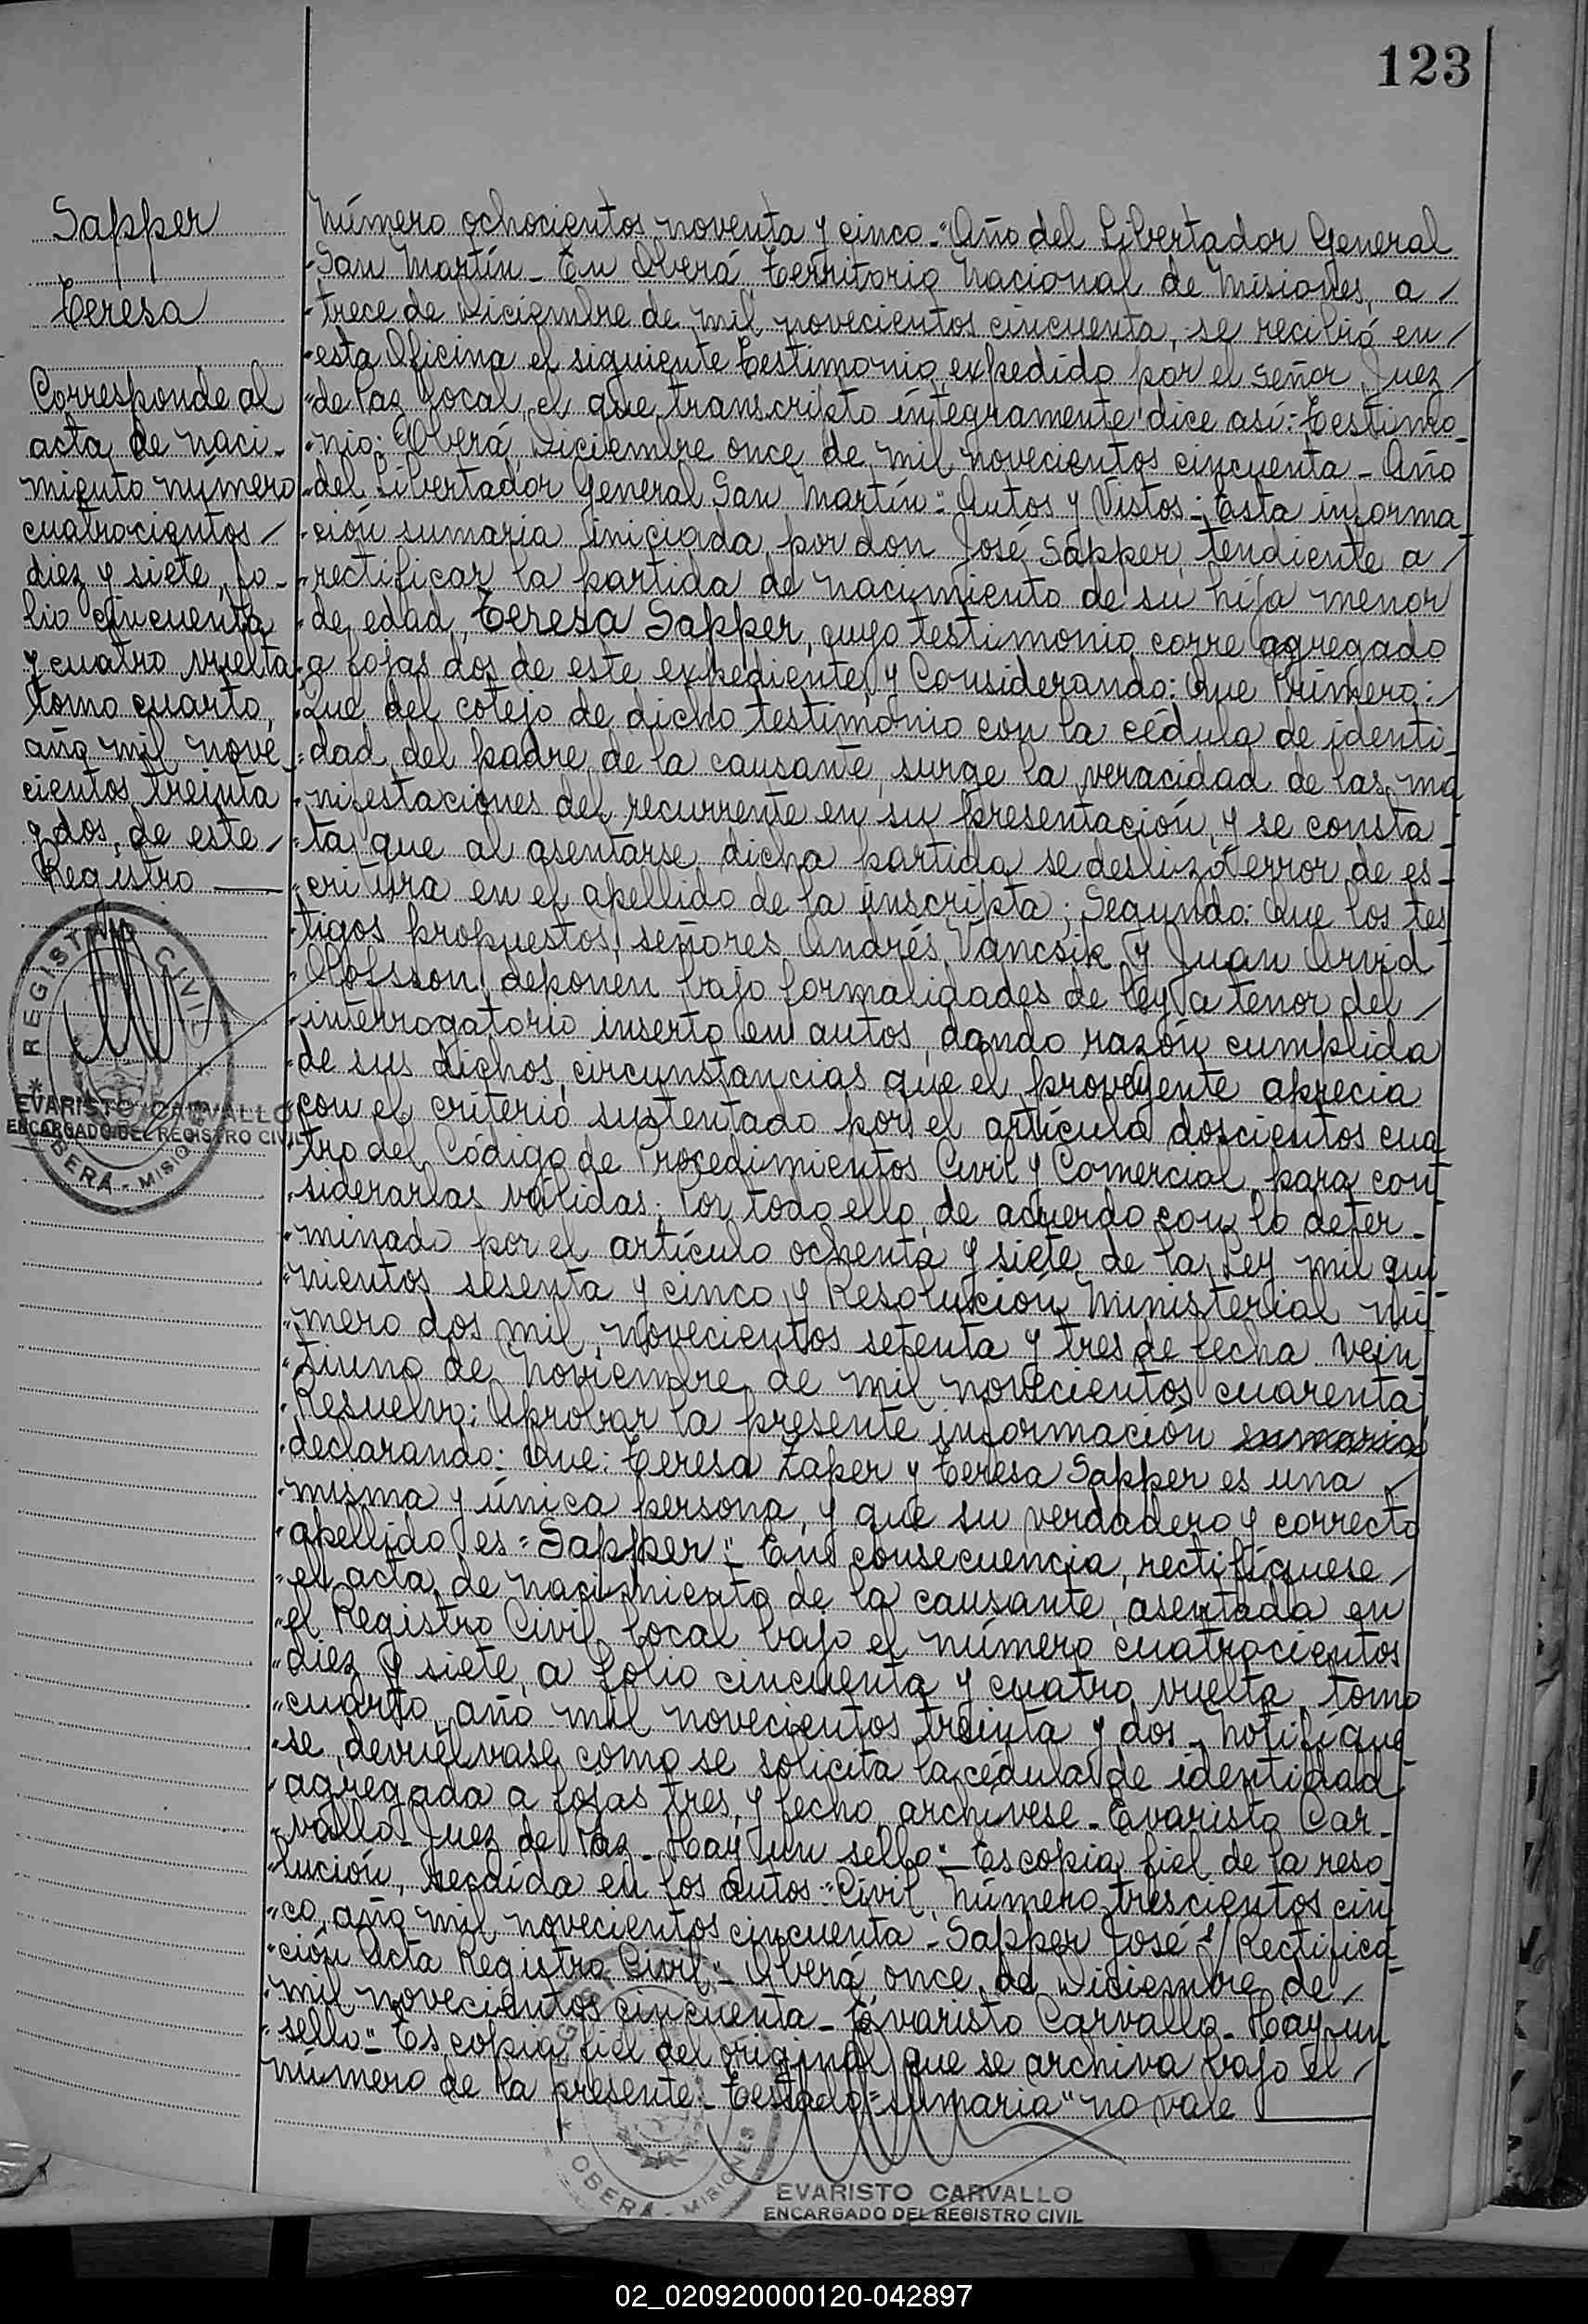 123
Sapper
Teresa
Corresponde al
acta de naci-
miento número
cuatrocientos
diez y siete, fo-
lio cincuenta
y cuatro vuelta
tomo cuarto,
año mil nove
cientos treinta
y dos, de este
Registro
REGISTRO CIVIL
OBERÁ - MISIONES
EVARISTO CARVALLO
ENCARGADO DEL REGISTRO CIVIL
Número ochocientos noventa y cinco - "Año del Libertador General
San Martín - En Oberá Territorio Nacional de Misiones, a
trece de Diciembre de mil novecientos cincuenta, se recibió en
esta Oficina el siguiente Testimonio, expedido por el señor Juez
de Paz local, el que transcripto íntegramente dice así: Testimo-
nio: Oberá, Diciembre once de mil novecientos cincuenta - Año
del Libertador General San Martín": Autos y Vistos: Esta informa
ción sumaria iniciada por don José Sapper, tendiente a
rectificar la partida de nacimiento de su hija menor
de edad, Teresa Sapper, cuyo testimonio corre agregado
a fojas dos de este expediente, y Considerando: Que Primero:
Que del cotejo de dicho testimonio con la cédula de identi-
dad del padre de la causante, surge la veracidad de las ma
nifestaciones del recurrente en su presentación, y se consta
ta que al asentarse dicha partida se deslizó error de es-
critura en el apellido de la inscripta; Segundo: Que los tes
tigos propuestos, señores Andrés Vancsik y Juan Arvid
Olofsson, deponen bajo formalidades de ley a tenor del
interrogatorio inserto en autos, dando razón cumplida
de sus dichos, circunstancias que el proveyente aprecia
con el criterio sustentado por el artículo doscientos cua
tro del Código de Procedimientos Civil y Comercial, para con
siderarlas válidas; Por todo ello, de acuerdo con lo deter-
minado por el artículo ochenta y siete de la Ley mil qui
nientos sesenta y cinco y Resolución Ministerial nú
mero dos mil novecientos setenta y tres de fecha vein
tiuno de Noviembre de mil novecientos cuarenta,
Resuelvo: Aprobar la presente información sumaria
declarando: Que: Teresa Zaper y Teresa Sapper es una
misma y única persona, y que su verdadero y correcto
apellido es "Sapper" - En consecuencia, rectifíquese
el acta de nacimiento de la causante, asentada en
el Registro Civil local bajo el número cuatrocientos
diez y siete, a folio cincuenta y cuatro vuelta, tomo
cuarto, año mil novecientos treinta y dos - Notifíque
se, devuélvase como se solicita la cédula de identidad
agregada a fojas tres, y fecho, archívese - Evaristo Car-
vallo - Juez de Paz - Hay un sello" - Es copia fiel de la reso
lución, recaída en los autos "Civil, Número trescientos cin
co, año mil novecientos cincuenta - Sapper José s/ Rectifica
ción Acta Registro Civil" - Oberá, once de Diciembre de
mil novecientos cincuenta - Evaristo Carvallo - Hay un
sello" - Es copia fiel del original que se archiva bajo el
número de la presente - Testado "sumaria" no vale
OBERÁ - MISIONES
EVARISTO CARVALLO
ENCARGADO DEL REGISTRO CIVIL
02_020920000120-042897